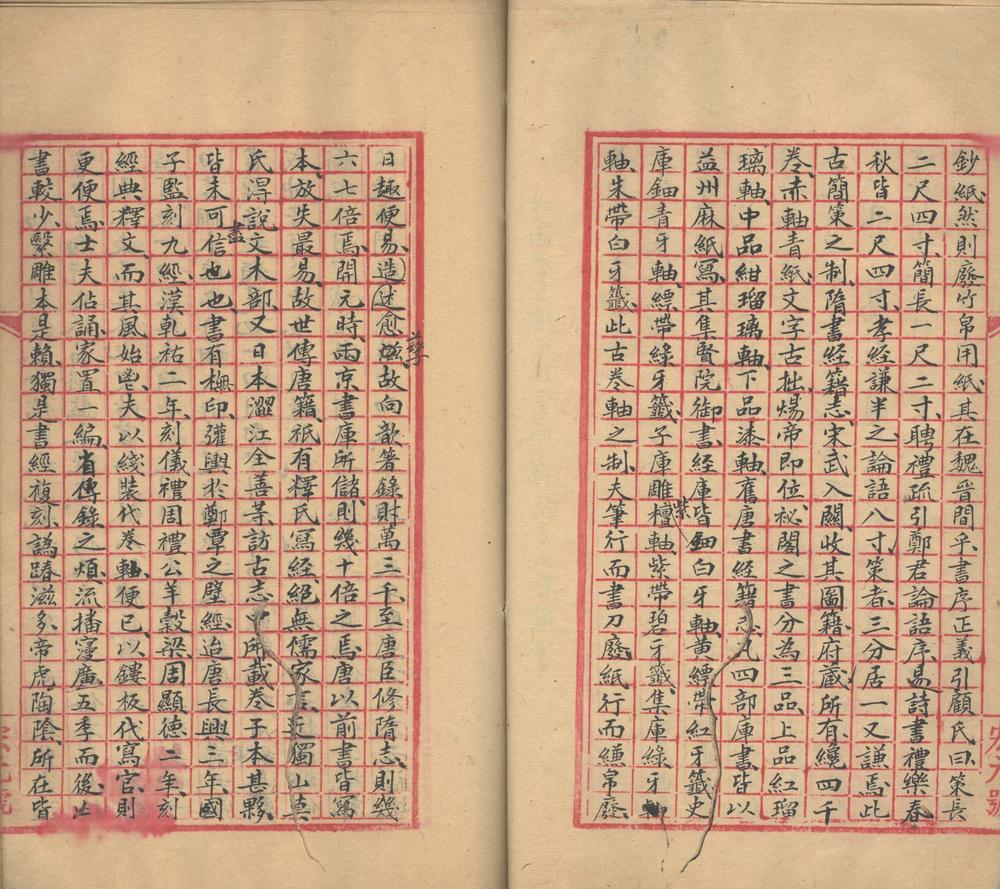 鈔紙然則廢竹帛用紙其在魏晉間乎書序正義引顧氏曰策長
二尺四寸簡長一尺二寸聘禮疏引鄭君論語序易詩書禮樂春
秋皆二尺四寸孝經謙半之論語八寸策者三分居一又謙焉此
古簡策之制隋書經籍志宋武入關收其圖籍府藏所有纔四千
卷赤軸青紙文字古拙煬帝即位祕閣之書分為三品上品紅瑠
璃軸中品紺瑠璃軸下品漆軸舊唐書經籍志凡四部庫書皆以
益州麻紙寫其集賢院御書經庫皆鈿白牙軸黃縹帶紅牙籤史
庫鈿青牙軸縹帶綠牙籤子庫雕檀軸紫帶碧牙籤集庫綠牙
軸朱帶白牙籤此古卷軸之制夫筆行而書刀廢紙行而縑帛廢
紫
日趣便易造述愈滋故向歆箸錄財萬三千至唐臣修隋志則幾
孳
六七倍焉開元時兩京書庫所儲則幾十倍之焉唐以前書皆寫
本放失最易故世傳唐籍祇有釋氏寫經絕無儒家言近獨山莫
氏淂說文木部又日本澀江全善等訪古志中所載卷子本甚夥
皆未可信也也書有槧印彍輿於鄭覃之壁經迨唐長興三年國
盡
子監刻九經漢乾祐二年刻儀禮周禮公羊穀梁周顯德二年刻
經典釋文而其風始鬯夫以綫裝代卷軸便已以鏤板代寫官則
更便焉士夫佔誦家置一編省傳錄之煩流播寖廣五季而後
書較少繄雕本是賴獨是書經複刻譌踳滋多帝虎陶陰所在皆